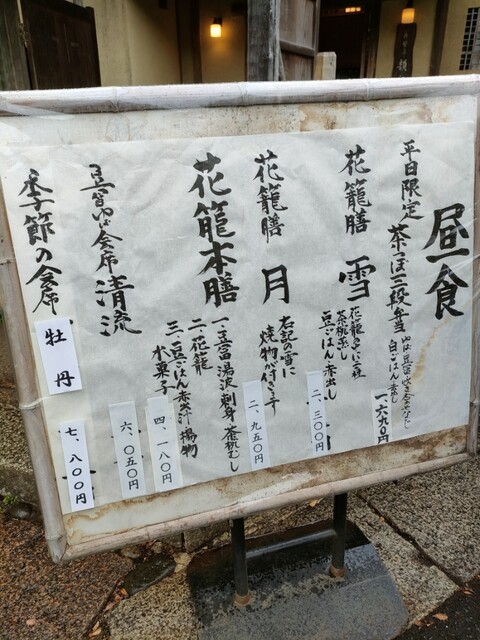 昼食
平日限定
茶つぼ三段弁当
白ごはん 赤だし
一、六九〇円
花籠膳 雪
茶碗蒸し
豆ごはん 赤出し
二、三〇〇円
花籠膳 月
右記の雪に
焼物が付きます
二、九五〇円
花籠本膳
一、豆富 湯波刺身 茶碗むし
二、花籠
三、豆ごはん 赤出汁 揚物
水菓子
四、一八〇円
豆富ゆば会席 清流
六、〇五〇円
季節の会席
牡丹
七、八〇〇円